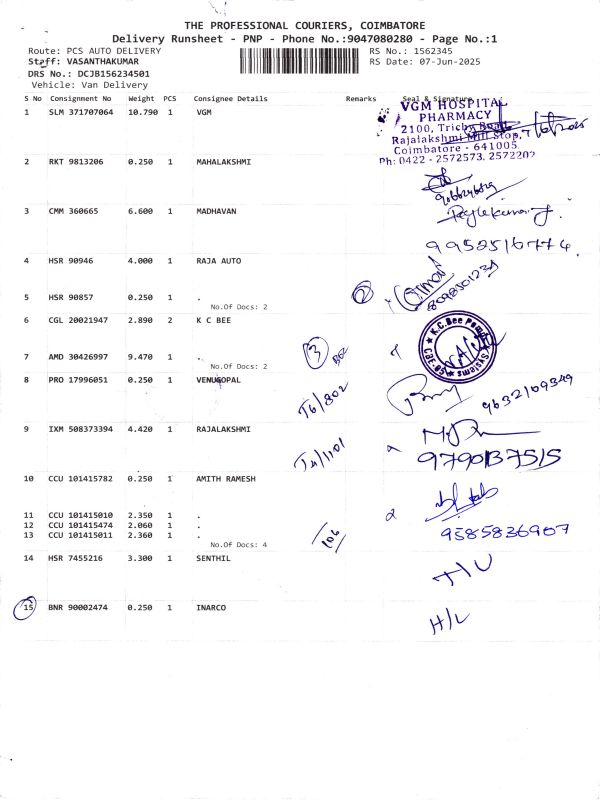 THE PROFESSIONAL COURIERS, COIMBATORE
Delivery Runsheet - PNP - Phone No.:9047080280 - Page No.:1
Route: PCS AUTO DELIVERY RS No.: 1562345
Staff: VASANTHAKUMAR RS Date: 07-Jun-2025
DRS No.: DCJB156234501
Vehicle: Van Delivery
S No Consignment No Weight PCS Consignee Details Remarks Seal & Signature
1 SLM 371707064 10.790 1 VGM
VGM HOSPITAL
PHARMACY
2100, Trichy Road
Rajalakshmi Mill Stop,
Coimbatore - 641005.
Ph: 0422 - 2572573, 2572202
2 RKT 9813206 0.250 1 MAHALAKSHMI
3 CMM 360665 6.600 1 MADHAVAN
9952516774
4 HSR 90946 4.000 1 RAJA AUTO
2
5 HSR 90857 0.250 1 .
No.Of Docs: 2
6 CGL 20021947 2.890 2 K C BEE
K.C.Bee Pump Systems CBE-
3
7 AMD 30426997 9.470 1 .
No.Of Docs: 2
8 PRO 17996051 0.250 1 VENUGOPAL
T6/802
9632109349
9 IXM 508373394 4.420 1 RAJALAKSHMI
T4/1101
9790137515
10 CCU 101415782 0.250 1 AMITH RAMESH
11 CCU 101415010 2.350 1 .
12 CCU 101415474 2.060 1 .
13 CCU 101415011 2.360 1 .
No.Of Docs: 4
106
9585836907
14 HSR 7455216 3.300 1 SENTHIL
15 BNR 90002474 0.250 1 INARCO
H/L